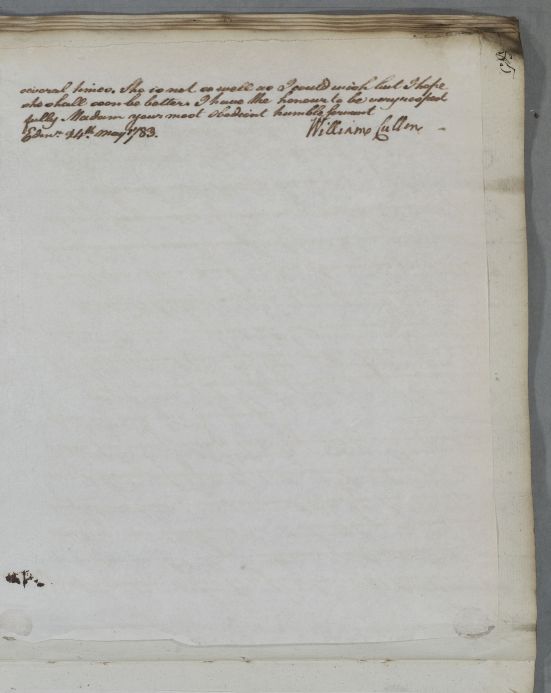 several times. She is not so well as I could wish but I hope
she shall soon be better. I have the honour to be very respect
fully Madam your most obedient humble servant
Edinr. 14th May 1783. William Cullen